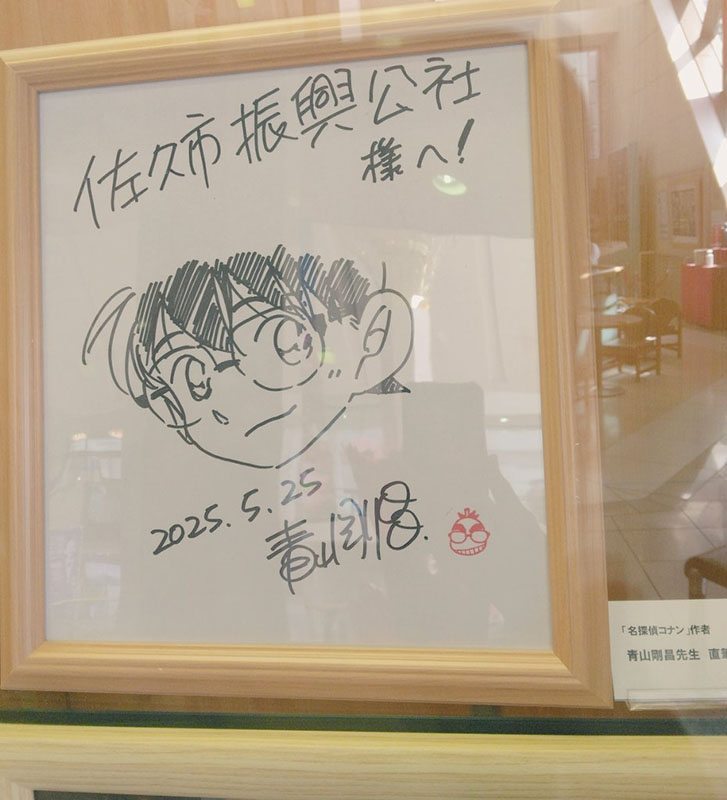 佐久市振興公社
様へ!
2025.5.25
青山剛昌
「名探偵コナン」作者
青山剛昌先生 直筆